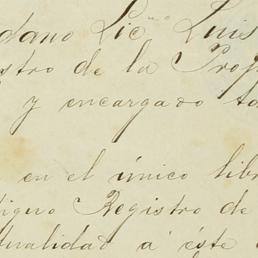 dano Lic.no Luis
stro de la Prop
y encargado ta
en el único libr
tiguo Registro de
tualidad á éste